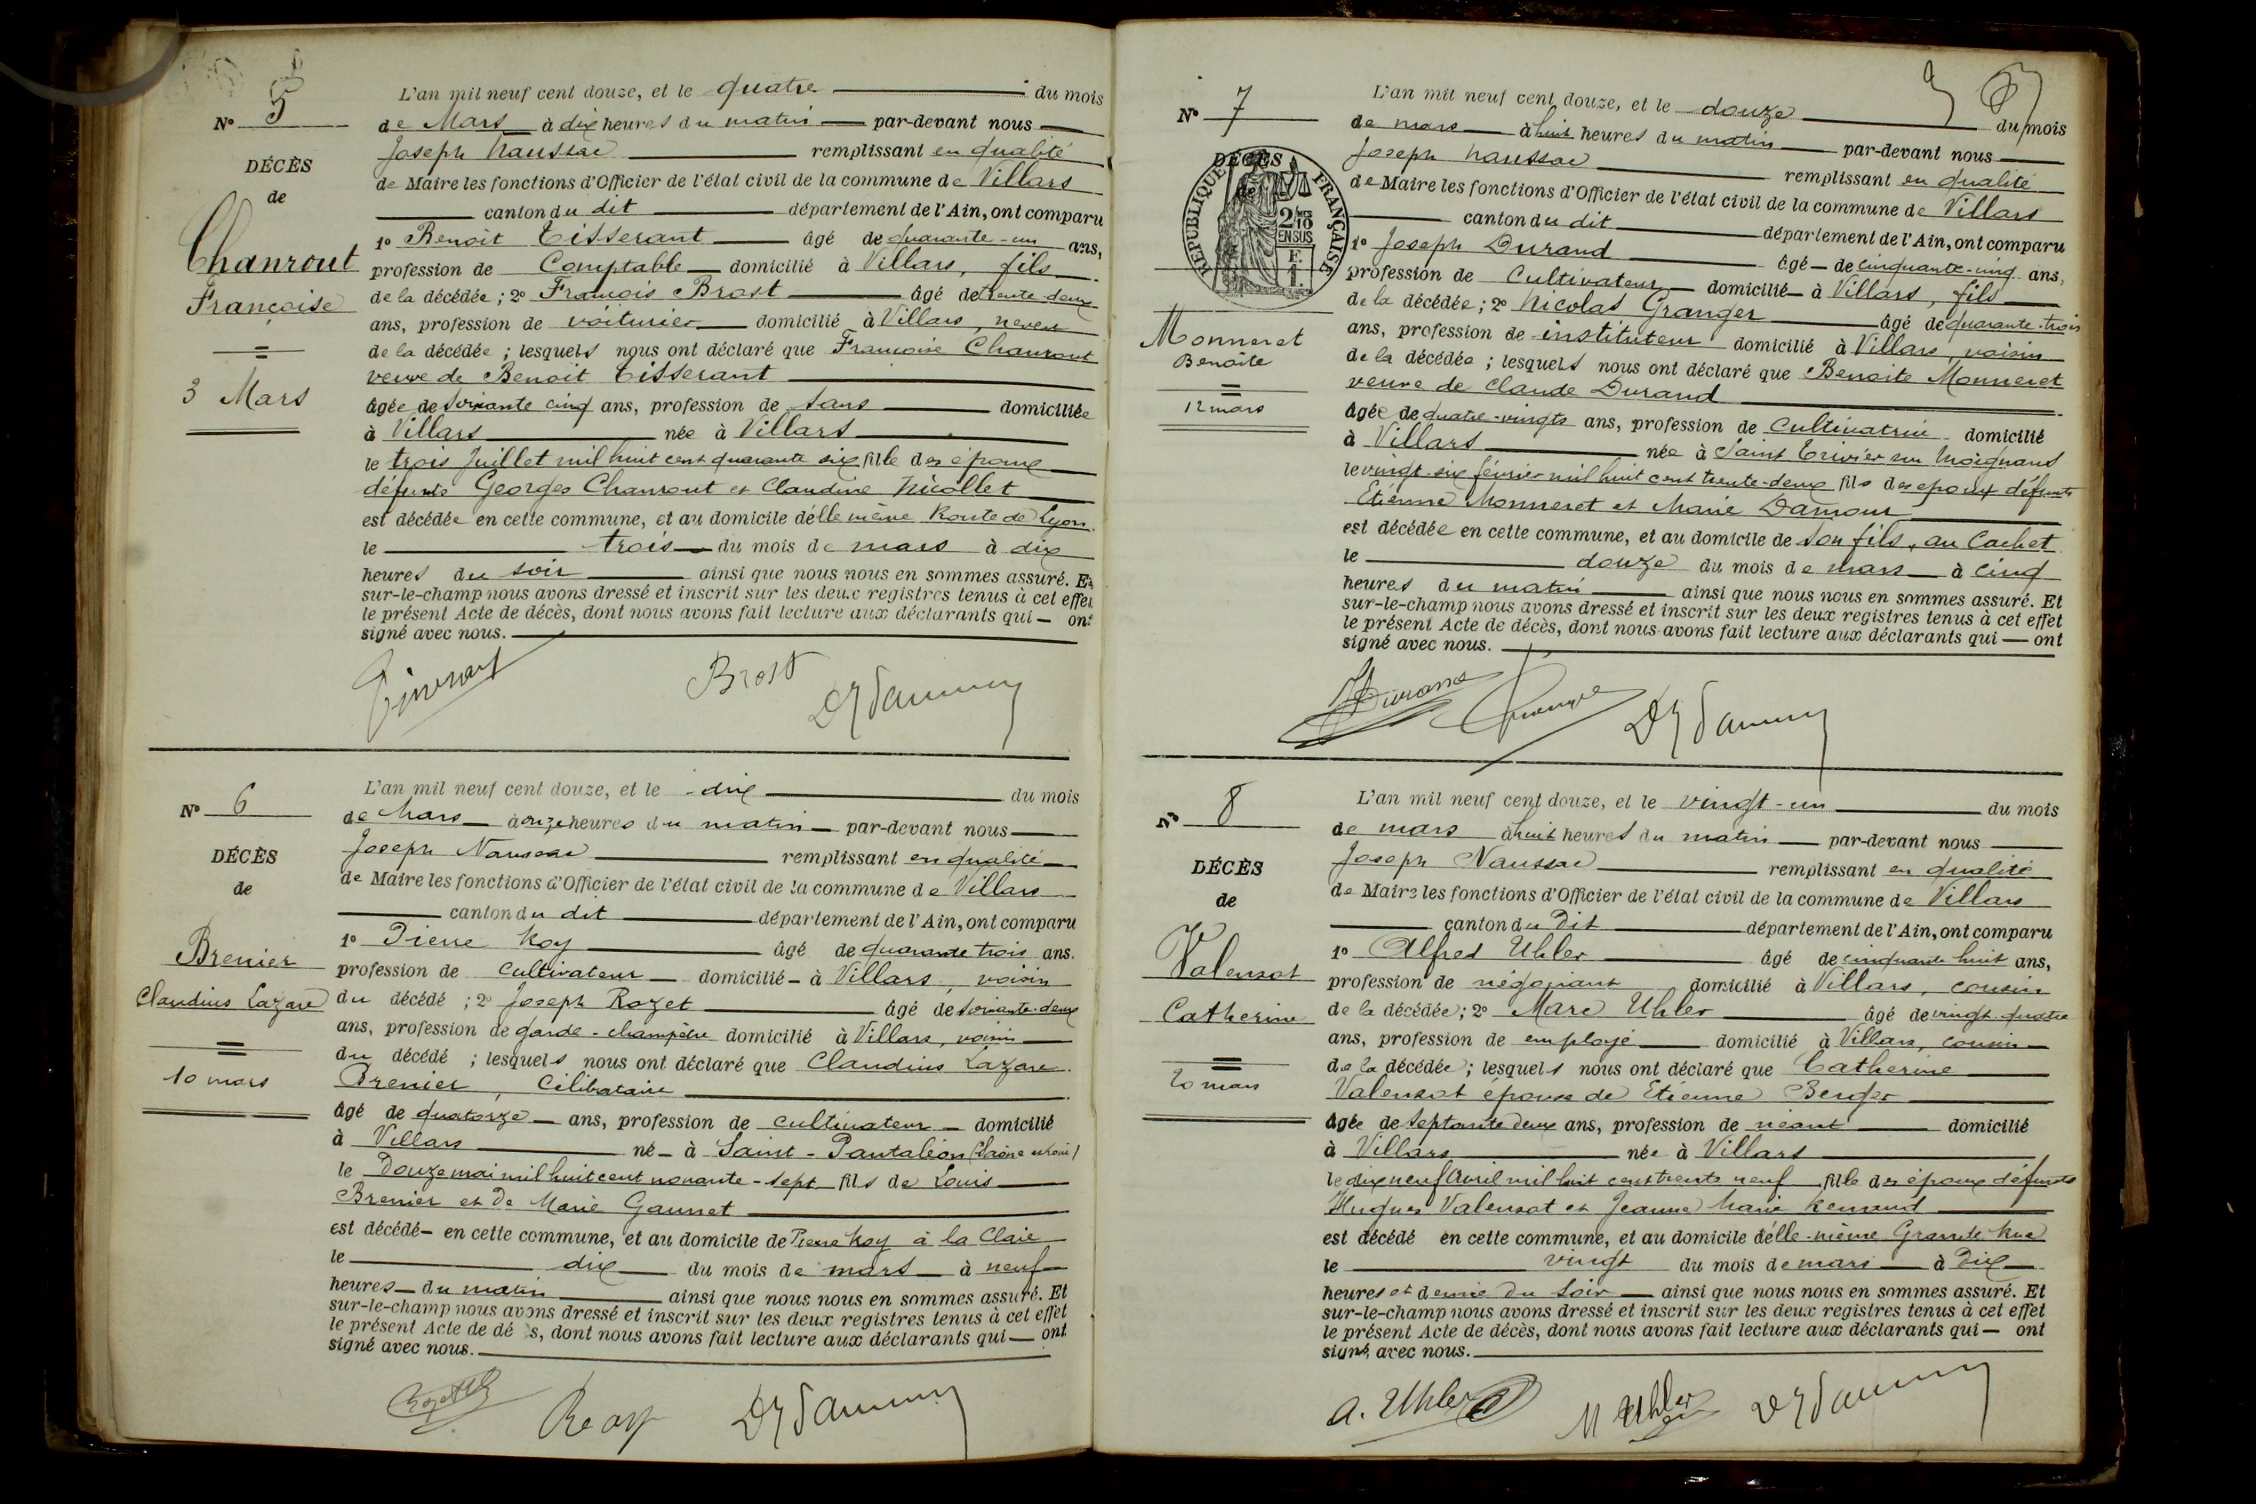 N° 5
DÉCÈS
de
Chanrout
Françoise
3 Mars
L'an mil neuf cent douze, et le quatre du mois
de Mars à dix heures du matin par-devant nous
Joseph Naussac remplissant en qualité
de Maire les fonctions d'Officier de l'état civil de la commune de Villars
canton du dit département de l'Ain, ont comparu
1° Benoit Tisserant âgé de quarante-un ans,
profession de Comptable domicilié à Villars, fils
de la décédée; 2° François Brost âgé de trente-deux
ans, profession de voiturier domicilié à Villars, neveu
de la décédée; lesquels nous ont déclaré que Françoise Chanrout
veuve de Benoit Tisserant
âgée de soixante cinq ans, profession de sans domiciliée
à Villars née à Villars
le trois Juillet mil huit cent quarante six fille des époux
défunts Georges Chanrout et Claudine Nicollet
est décédée en cette commune, et au domicile d'elle même Route de Lyon
le trois du mois de mars à dix
heures du soir ainsi que nous nous en sommes assuré. Et
sur-le-champ nous avons dressé et inscrit sur les deux registres tenus à cet effet
le présent Acte de décès, dont nous avons fait lecture aux déclarants qui — ont
signé avec nous.
Brost
N° 6
DÉCÈS
de
Brenier
Claudius Lazare
10 mars
L'an mil neuf cent douze, et le dix du mois
de Mars à onze heures du matin par-devant nous
Joseph Naussac remplissant en qualité
de Maire les fonctions d'Officier de l'état civil de la commune de Villars
canton du dit département de l'Ain, ont comparu
1° Pierre Roy âgé de quarante trois ans.
profession de cultivateur domicilié à Villars, voisin
du décédé; 2° Joseph Rozet âgé de soixante-deux
ans, profession de garde-champêtre domicilié à Villars, voisin
du décédé; lesquels nous ont déclaré que Claudius Lazare
Brenier, célibataire
âgé de quatorze ans, profession de cultivateur domicilié
à Villars né à Saint-Pantaléon (Saône et Loire)
le Douze mai mil huit cent novante-sept fils de Louis
Brenier et de Marie Gaunet
est décédé en cette commune, et au domicile de Pierre Roy à la Claie
le dix du mois de mars à neuf
heures du matin ainsi que nous nous en sommes assuré. Et
sur-le-champ nous avons dressé et inscrit sur les deux registres tenus à cet effet
le présent Acte de dé s, dont nous avons fait lecture aux déclarants qui — ont
signé avec nous.
N° 7
DÉCÈS
de
RÉPUBLIQUE FRANÇAISE
2/10 EN SUS
F.
1.
Monneret
Benoîte
12 mars
L'an mil neuf cent douze, et le douze du mois
de mars à huit heures du matin par-devant nous
Joseph Naussac remplissant en qualité
de Maire les fonctions d'Officier de l'état civil de la commune de Villars
canton du dit département de l'Ain, ont comparu
1° Joseph Durand âgé de cinquante-cinq ans,
profession de Cultivateur domicilié à Villars, fils
de la décédée; 2° Nicolas Granger âgé de quarante-trois
ans, profession de instituteur domicilié à Villars, voisin
de la décédée; lesquels nous ont déclaré que Benoite Monneret
veuve de Claude Durand
âgée de quatre-vingts ans, profession de Cultivatrice domicilié
à Villars née à Saint Trivier sur Moignans
le vingt-six février mil huit cent trente-deux fils des époux défunts
Etienne Monneret et Marie Damour
est décédée en cette commune, et au domicile de son fils, au Cachet
le douze du mois de mars à cinq
heures du matin ainsi que nous nous en sommes assuré. Et
sur-le-champ nous avons dressé et inscrit sur les deux registres tenus à cet effet
le présent Acte de décès, dont nous avons fait lecture aux déclarants qui — ont
signé avec nous.
Durand
N° 8
DÉCÈS
de
Valensot
Catherine
20 mars
L'an mil neuf cent douze, et le vingt-un du mois
de mars à huit heures du matin par-devant nous
Joseph Naussac remplissant en qualité
de Maire les fonctions d'Officier de l'état civil de la commune de Villars
canton du Dit département de l'Ain, ont comparu
1° Alfred Uhler âgé de cinquante huit ans,
profession de négociant domicilié à Villars, cousin
de la décédée; 2° Marc Uhler âgé de vingt-quatre
ans, profession de employé domicilié à Villars, cousin
de la décédée; lesquels nous ont déclaré que Catherine
Valensot épouse de Etienne Berger
âgée de septante deux ans, profession de néant domicilié
à Villars née à Villars
le dix neuf avril mil huit cent trente neuf fille des époux défunts
Hugues Valensot et Jeanne Marie Renaud
est décédé en cette commune, et au domicile d'elle-même Grande Rue
le vingt du mois de mars à Dix
heures et demie du soir ainsi que nous nous en sommes assuré. Et
sur-le-champ nous avons dressé et inscrit sur les deux registres tenus à cet effet
le présent Acte de décès, dont nous avons fait lecture aux déclarants qui — ont
signé avec nous.
A. Uhler M Uhler